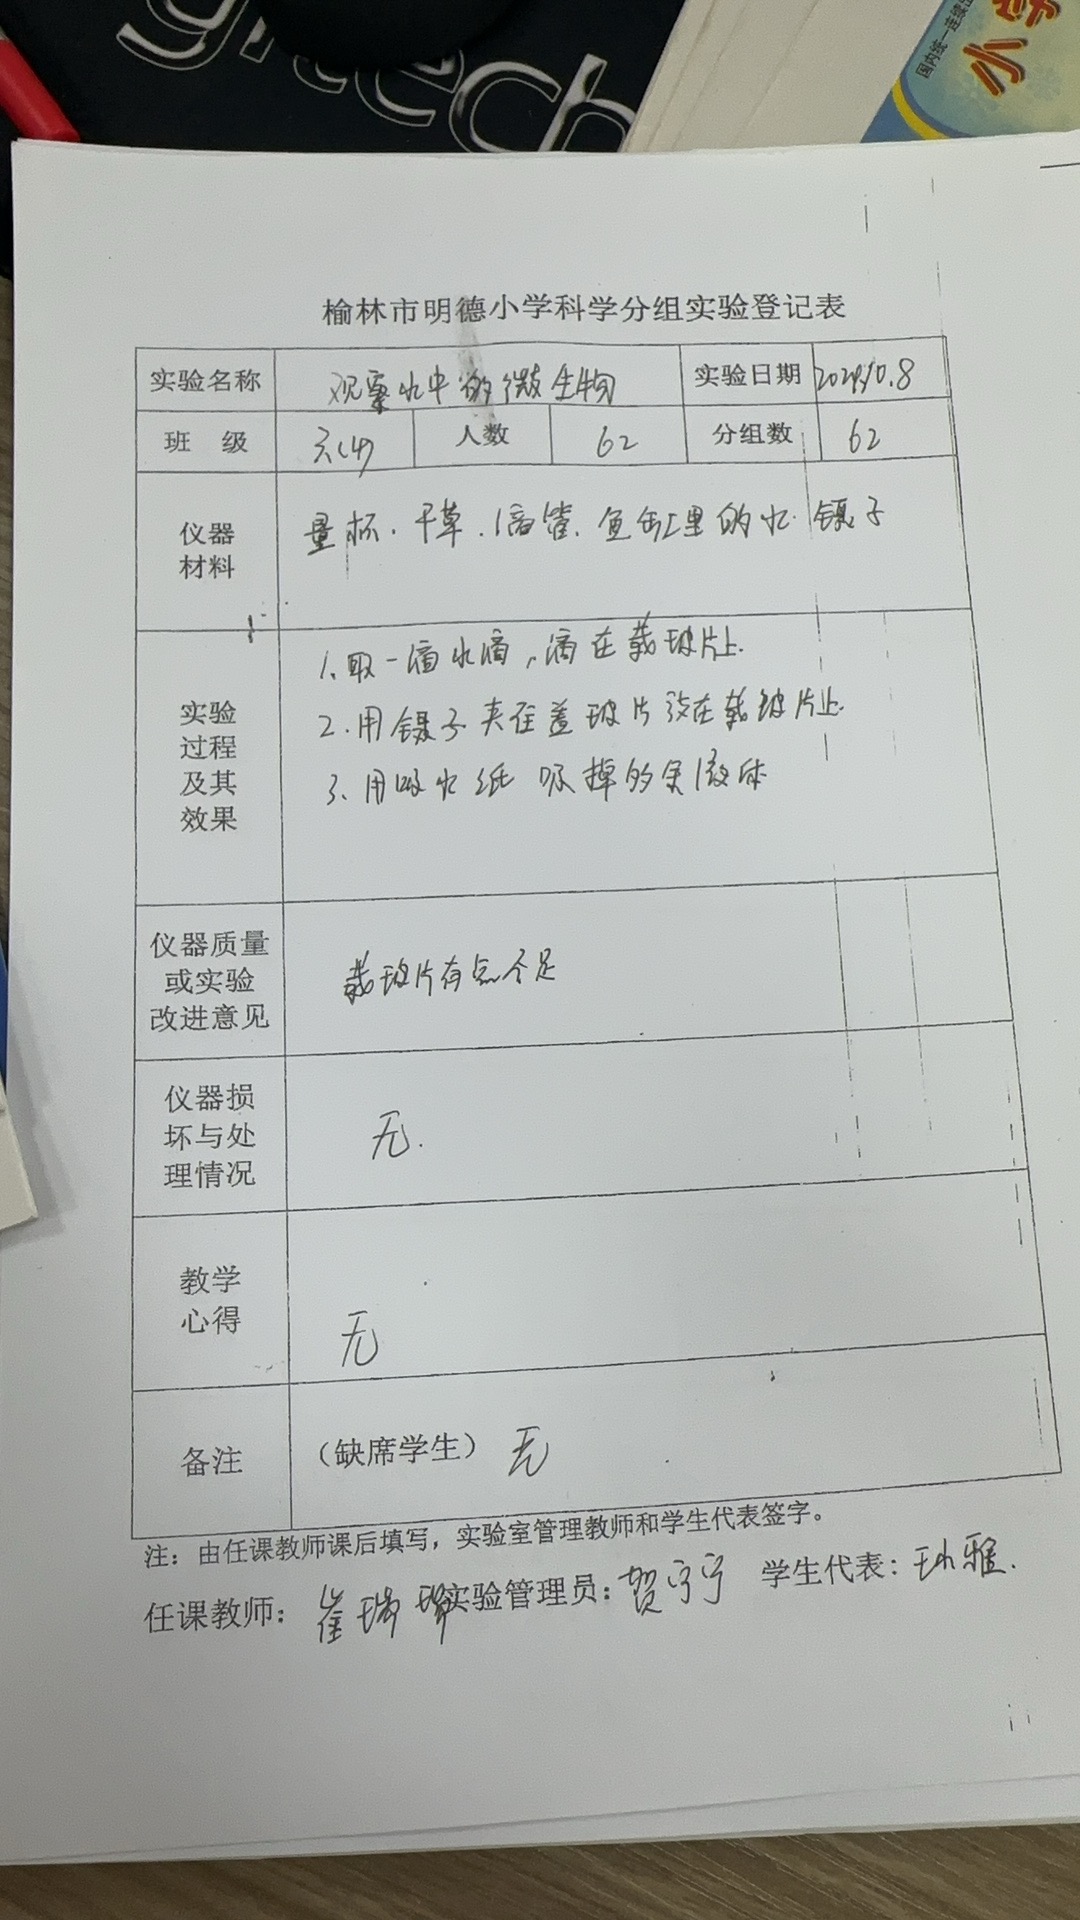 国内统一连续出
小学
榆林市明德小学科学分组实验登记表
实验名称 观察水中的微生物 实验日期 2024.10.8
班 级 六(4) 人数 62 分组数 62
仪器材料 量杯、干草、滴管、鱼缸里的水、镊子
实验过程及其效果
1、取一滴水滴,滴在载玻片上.
2.用镊子夹住盖玻片放在载玻片上.
3、用吸水纸吸掉的多余液体
仪器质量或实验改进意见 载玻片有点不足
仪器损坏与处理情况 无.
教学心得 无
备注 (缺席学生) 无
注:由任课教师课后填写,实验室管理教师和学生代表签字。
任课教师: 崔瑞 实验管理员:贺宁宁 学生代表: 雅.